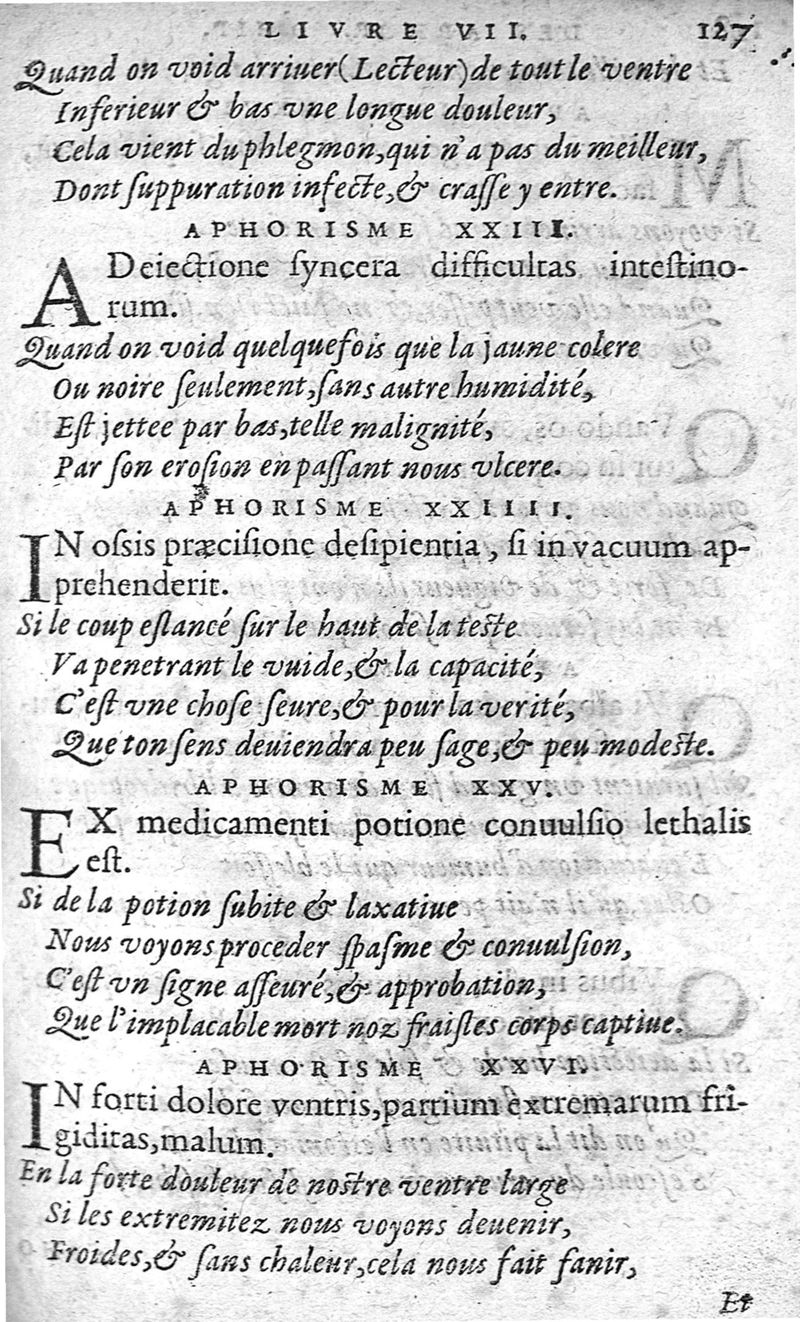 LIVRE VII. 127
Quand on void arriuer (Lecteur) de tout le ventre
Inferieur & bas vne longue douleur,
Cela vient du phlegmon, qui n'a pas du meilleur,
Dont ſuppuration infecte, & craſſe y entre.
APHORISME XXIII.
ADeiectione ſyncera difficultas inteſtino-
rum.
Quand on void quelquefois que la jaune colere
Ou noire ſeulement, ſans autre humidité,
Eſt jettee par bas, telle malignité,
Par ſon eroſion en paſſant nous vlcere.
APHORISME XXIIII.
IN oſsis præciſione deſipientia, ſi in vacuum ap-
prehenderit.
Si le coup eſlancé ſur le haut de la teſte
Va penetrant le vuide, & la capacité,
C'eſt vne choſe ſeure, & pour la verité,
Que ton ſens deuiendra peu ſage, & peu modeſte.
APHORISME XXV.
EX medicamenti potione conuulſio lethalis
eſt.
Si de la potion ſubite & laxatiue
Nous voyons proceder ſpaſme & conuulſion,
C'eſt vn ſigne aſſeuré, & approbation,
Que l'implacable mort noz fraiſles corps captiue.
APHORISME XXVI.
IN forti dolore ventris, partium extremarum fri-
giditas, malum.
En la forte douleur de noſtre ventre large
Si les extremitez nous voyons deuenir,
Froides, & ſans chaleur, cela nous fait fanir,
Et